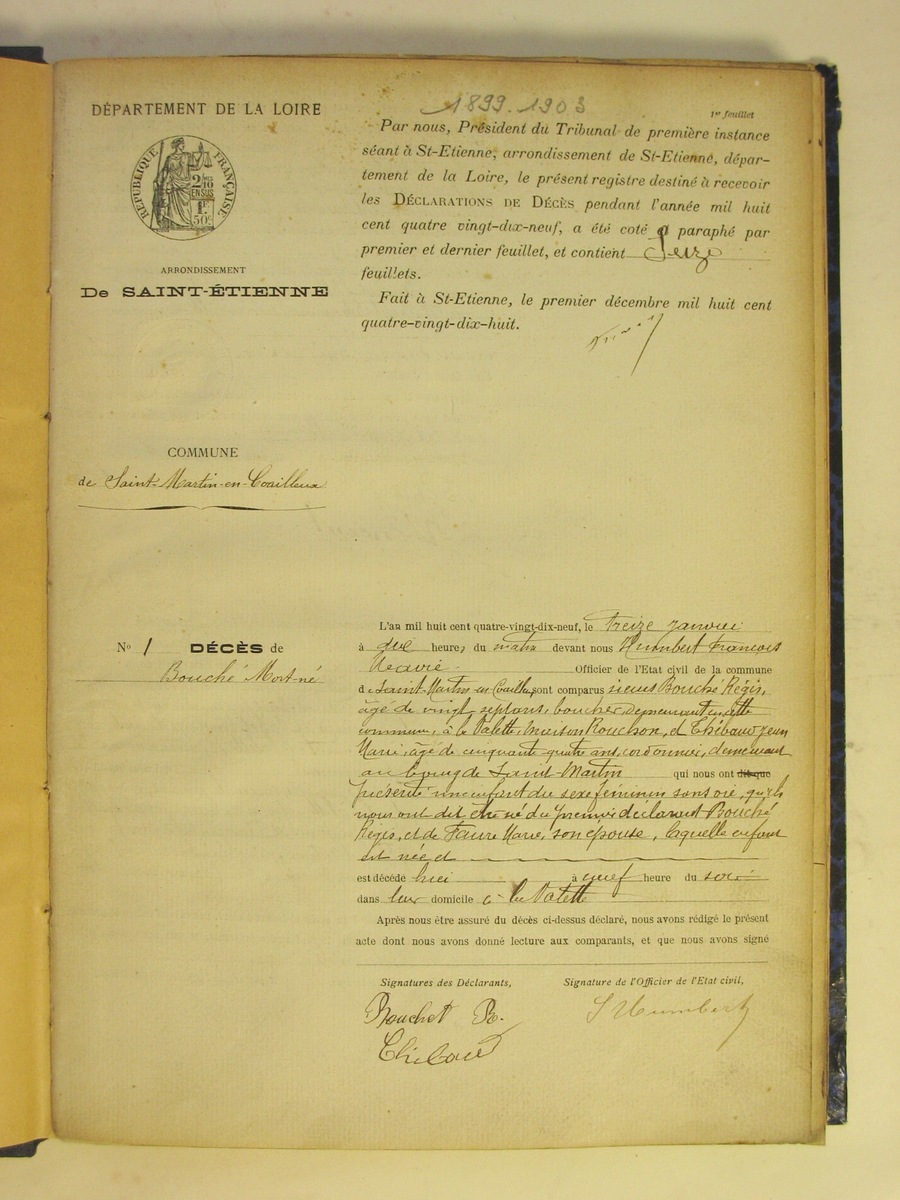 DÉPARTEMENT DE LA LOIRE
RÉPUBLIQUE FRANÇAISE
2/10
EN SUS
1F.
50c
ARRONDISSEMENT
De SAINT-ÉTIENNE
COMMUNE
de Saint-Martin-en-Coailleux
1899-1903
1er feuillet
Par nous, Président du Tribunal de première instance
séant à St-Etienne, arrondissement de St-Etienne, dépar-
tement de la Loire, le présent registre destiné à recevoir
les DÉCLARATIONS DE DÉCÈS pendant l'année mil huit
cent quatre vingt-dix-neuf, a été coté & paraphé par
premier et dernier feuillet, et contient Seize
feuillets.
Fait à St-Etienne, le premier décembre mil huit cent
quatre-vingt-dix-huit.
No 1 DÉCÈS de
Bouché Mort-né
L'an mil huit cent quatre-vingt-dix-neuf, le Treize janvier
à heure, du matin devant nous Humbert François
Officier de l'Etat civil de la commune
de Saint-Martin en Coailleux sont comparus sieurs Bouché Régis,
âgé de vingt sept ans, boucher, demeurant en cette
commune, à la Valette, maison Rouchon, et Thibaud jean
Marie, âgé de cinquante quatre ans, cordonnier, demeurant
au bourg de Saint-Martin qui nous ont dit que
présenté un enfant du sexe féminin sans vie, qu'ils
nous ont dit être né du premier déclarant Bouché
Régis, et de Faure Marie, son épouse, laquelle enfant
est née et
est décédé hier à neuf heure du soir
dans leur domicile à la Valette
Après nous être assuré du décès ci-dessus déclaré, nous avons rédigé le présent
acte dont nous avons donné lecture aux comparants, et que nous avons signé
Signatures des Déclarants,
Signature de l'Officier de l'Etat civil,
Bouchet R.
Humbert
Thibaud